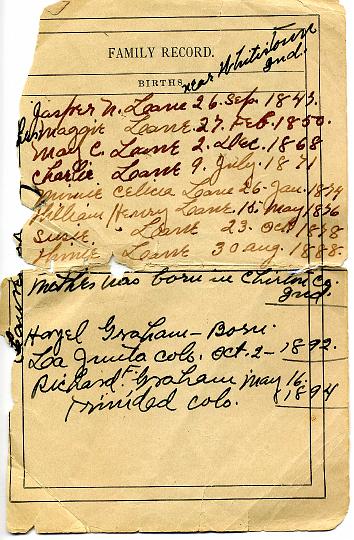 FAMILY RECORD.
BIRTHS.
near Whitestown
Ind.
Jasper N. Loane 26. Sep. 1843.
Maggie Loane. 27. Feb. 1850.
May C. Loane 2. Dec. 1868
Charlie Loane 9. July. 1871
Minnie Loane 26. Jan. 1874
William Henry Loane. 15. May 1876
Susie " Loane 23. Oct
Loane 30 Aug. 1888.
Mother was born in Clinton Co.
Ind.
Hazel Graham - Born.
La Junta Colo. Oct. 2 - 1892.
Richard F. Graham May 16.
1894
Trinidad Colo.